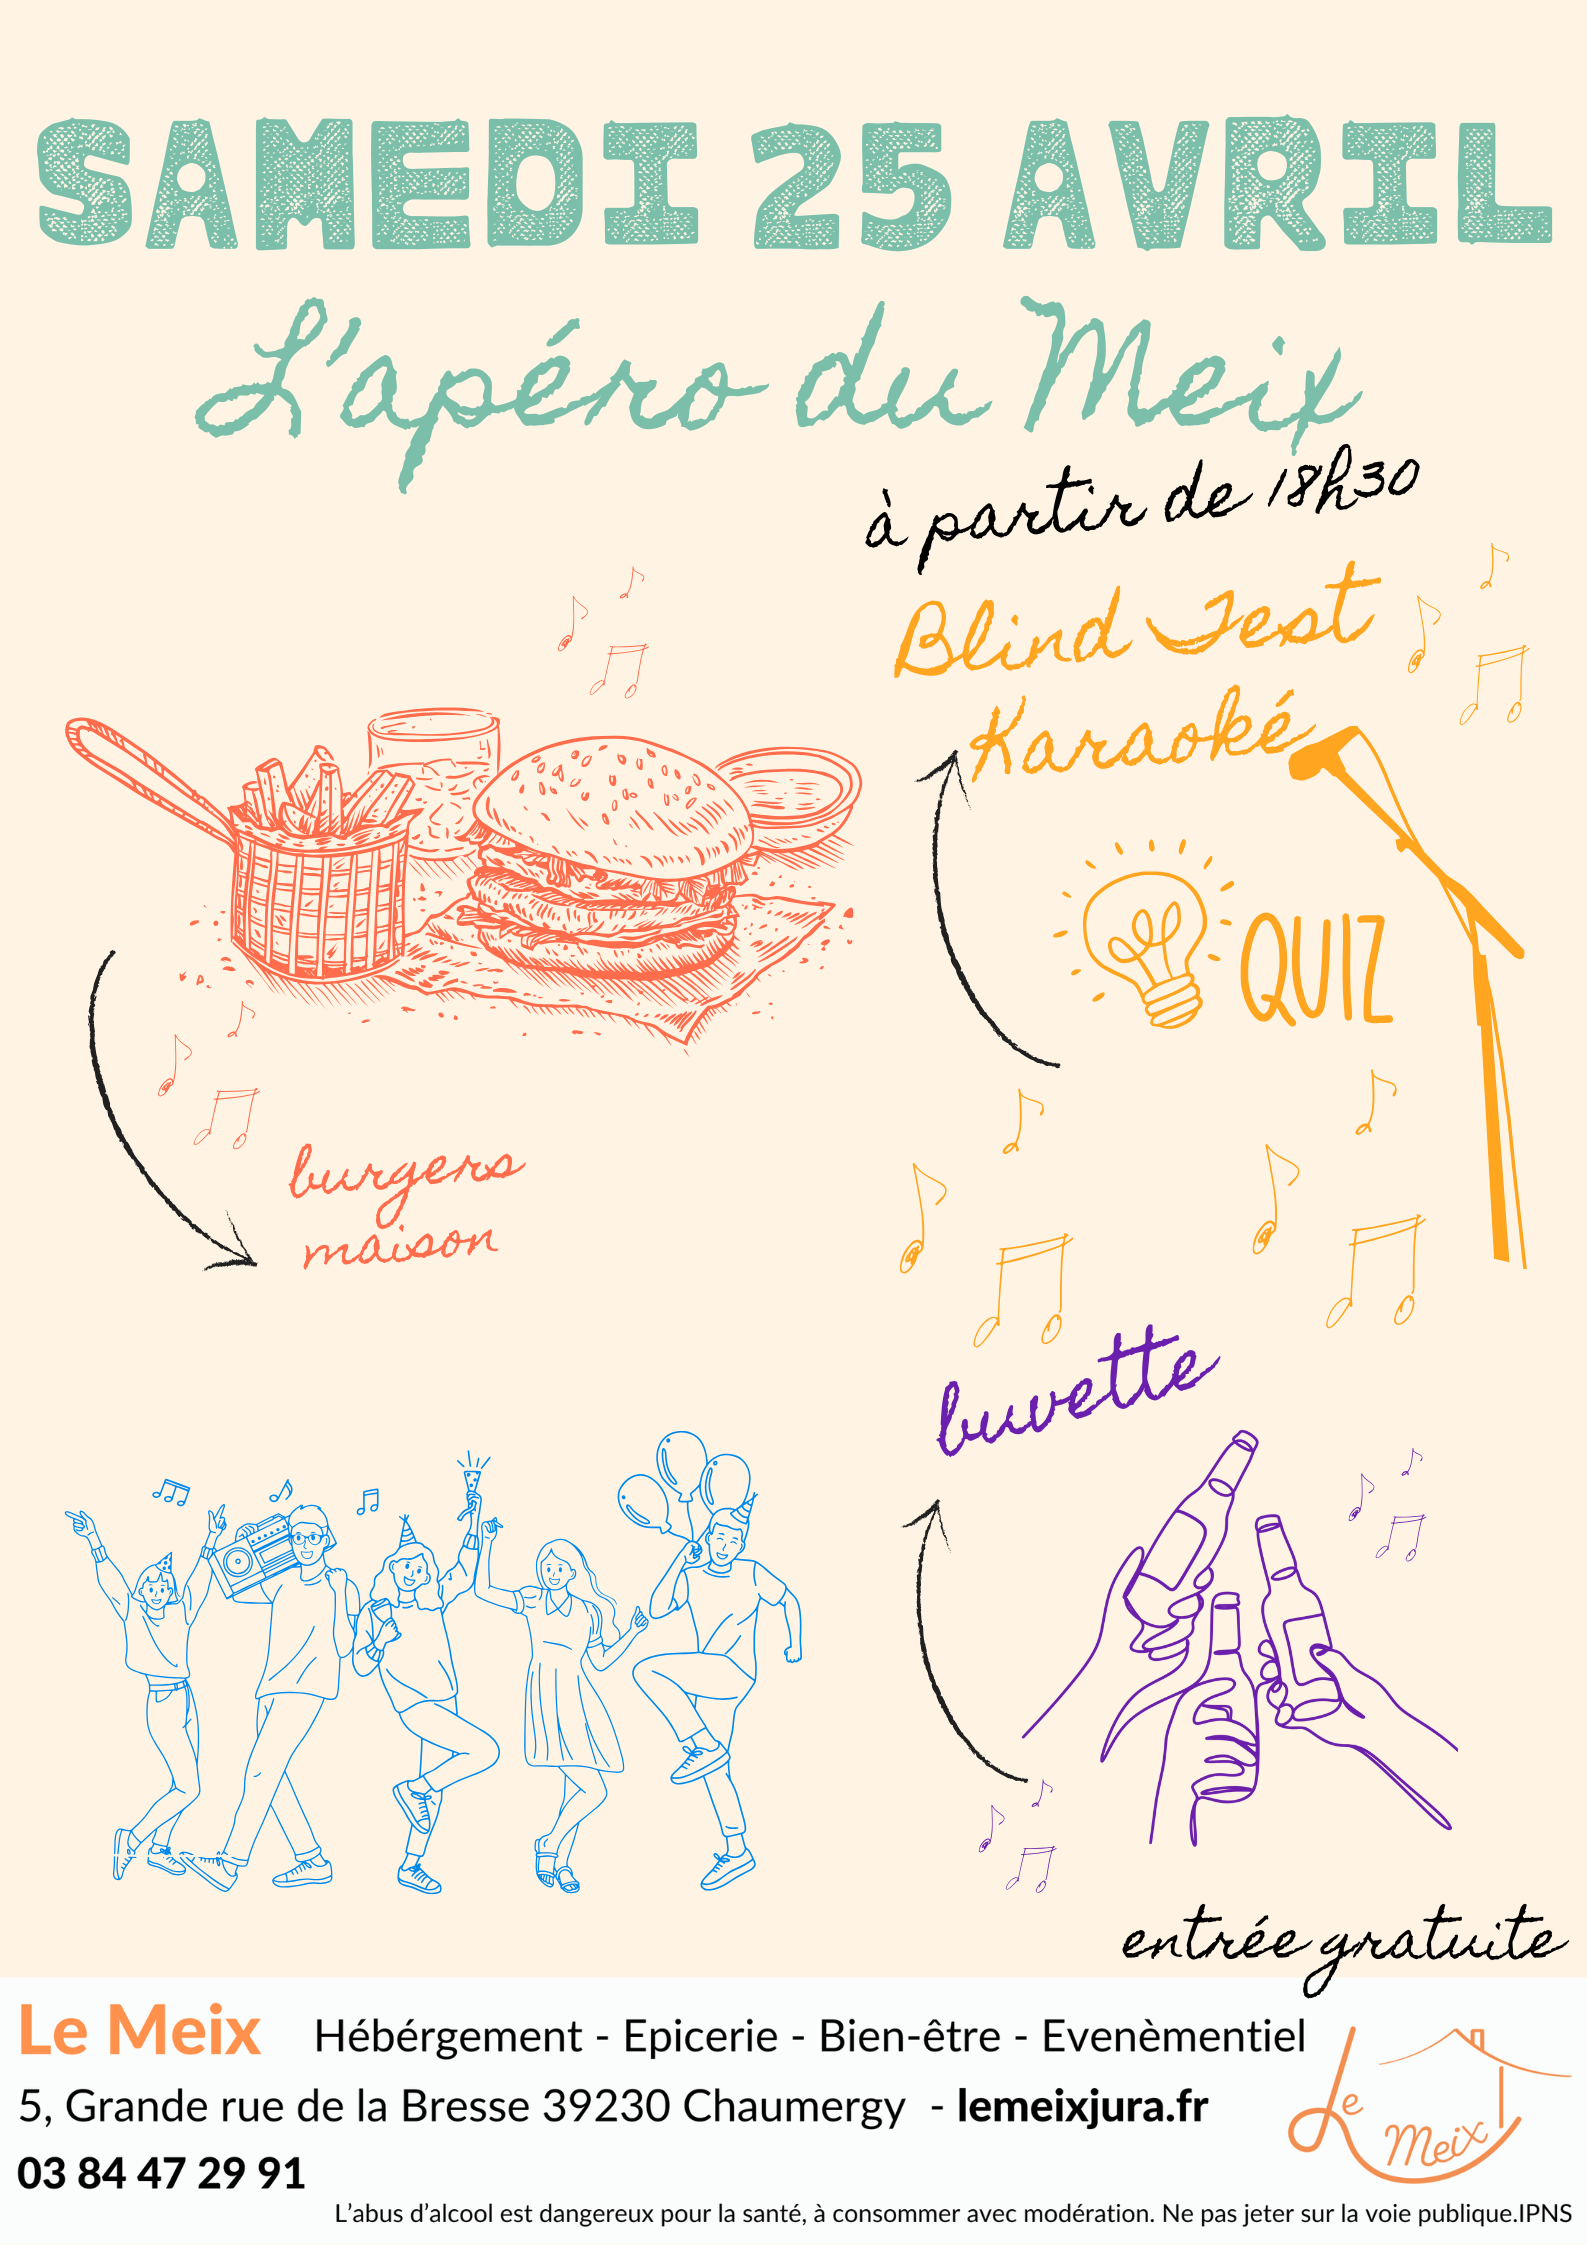 SAMEDI 25 AVRIL
L'apéro du Meix
à partir de 18h30
Blind Test
Karaoké
QUIZ
burgers
maison
buvette
entrée gratuite
Le Meix Hébérgement - Epicerie - Bien-être - Evenèmentiel
5, Grande rue de la Bresse 39230 Chaumergy - lemeixjura.fr
03 84 47 29 91
Le
Meix
L'abus d'alcool est dangereux pour la santé, à consommer avec modération. Ne pas jeter sur la voie publique.IPNS